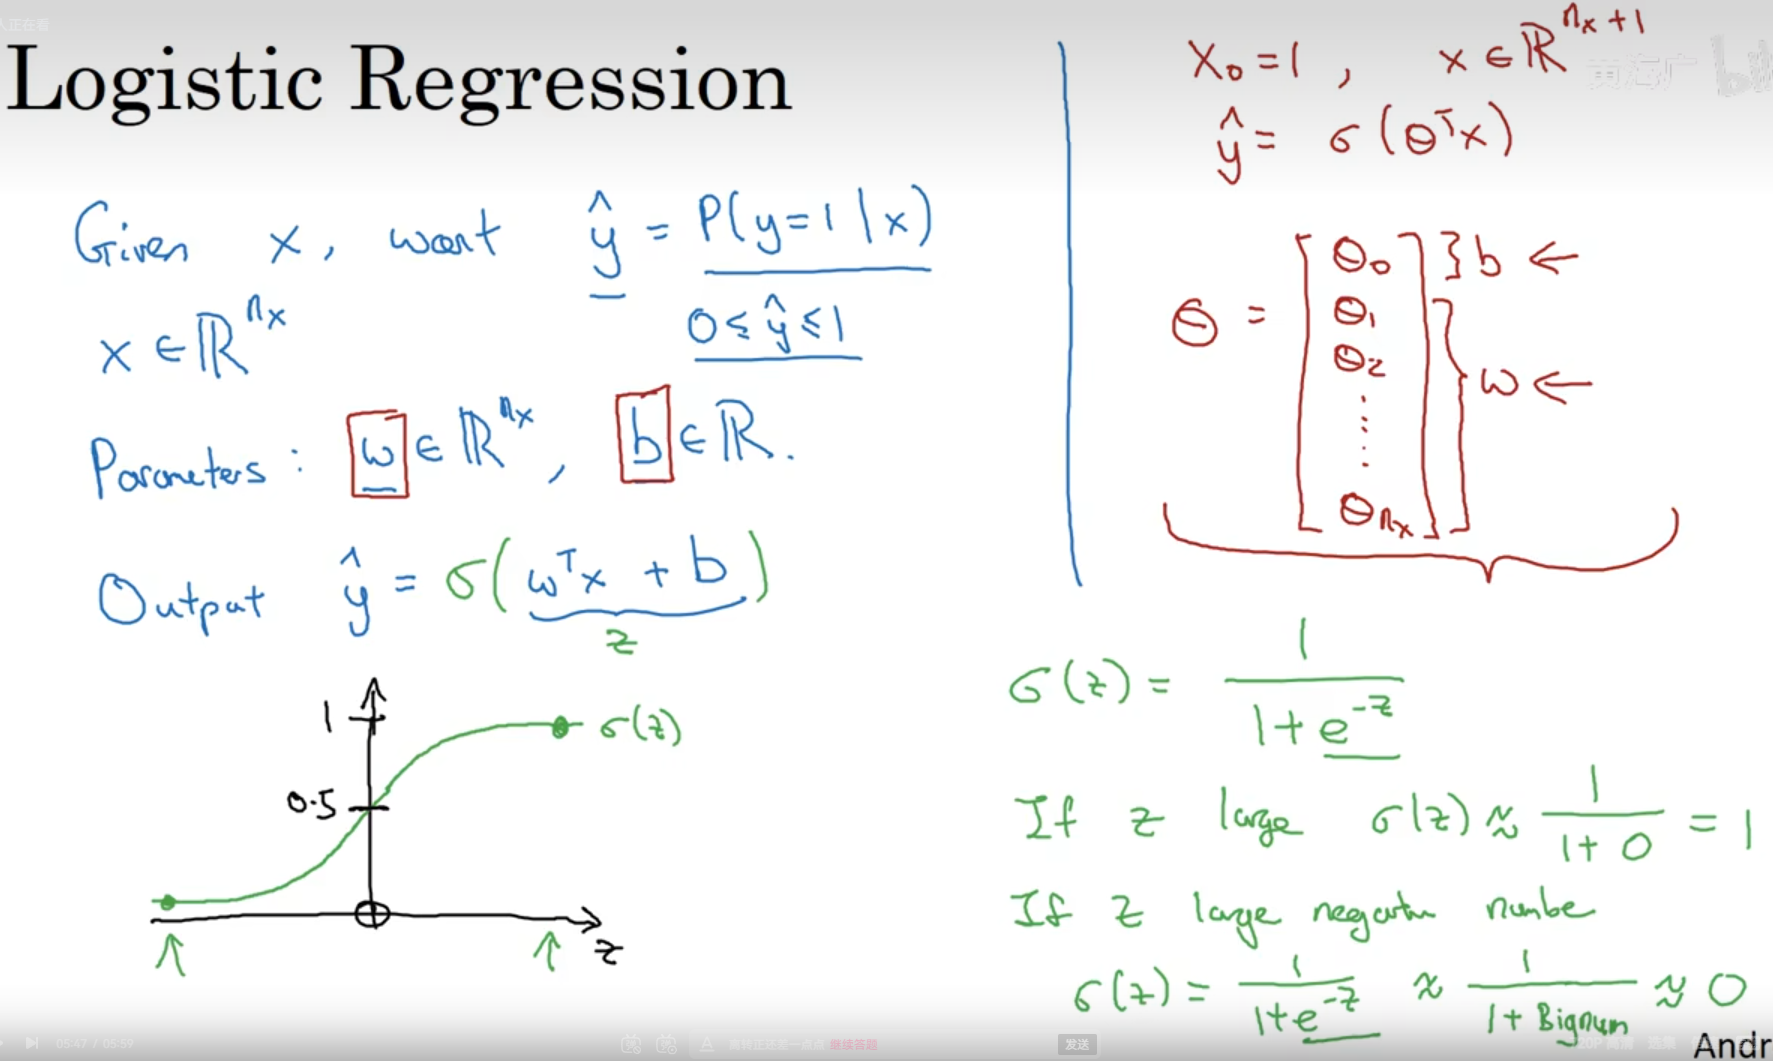 人正在看
Logistic Regression
Given x, want ŷ = P(y=1|x)
0 ≤ ŷ ≤ 1
x ∈ ℝ^{n_x}
Parameters: w ∈ ℝ^{n_x}, b ∈ ℝ.
Output ŷ = σ(w^T x + b)
z
1
σ(z)
0.5
z
x_0 = 1, x ∈ ℝ^{n_x+1}
黄海广
ŷ = σ(θ^T x)
θ = [θ_0 θ_1 θ_2 ⋮ θ_{n_x}]
} b ←
} w ←
σ(z) = 1/(1+e^{-z})
If z large σ(z) ≈ 1/(1+0) = 1
If z large negative number
σ(z) = 1/(1+e^{-z}) ≈ 1/(1+Bignum) ≈ 0
05:47 / 05:59
继续答题
发送
高清
选集
Andr